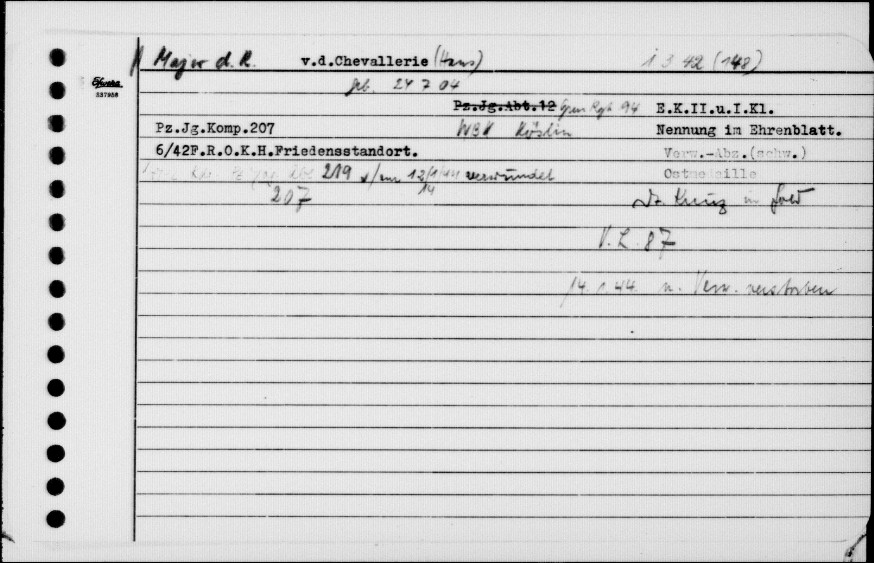 Major d.R. v.d.Chevallerie (Hans) 1 3 42 (148)
Elwezba
237958
geb. 24 7 04
Pz.Jg.Abt.12 Gren Rgt 94 E.K.II.u.I.Kl.
Pz.Jg.Komp.207 WBK Köslin Nennung im Ehrenblatt.
6/42F.R.O.K.H.Friedensstandort. Verw.-Abz.(schw.)
219 am 12/1/44 verwundet Ostmedaille
207 14 Dt. Kreuz in Gold
V.L. 87
14. 1. 44. n. Verw. verstorben